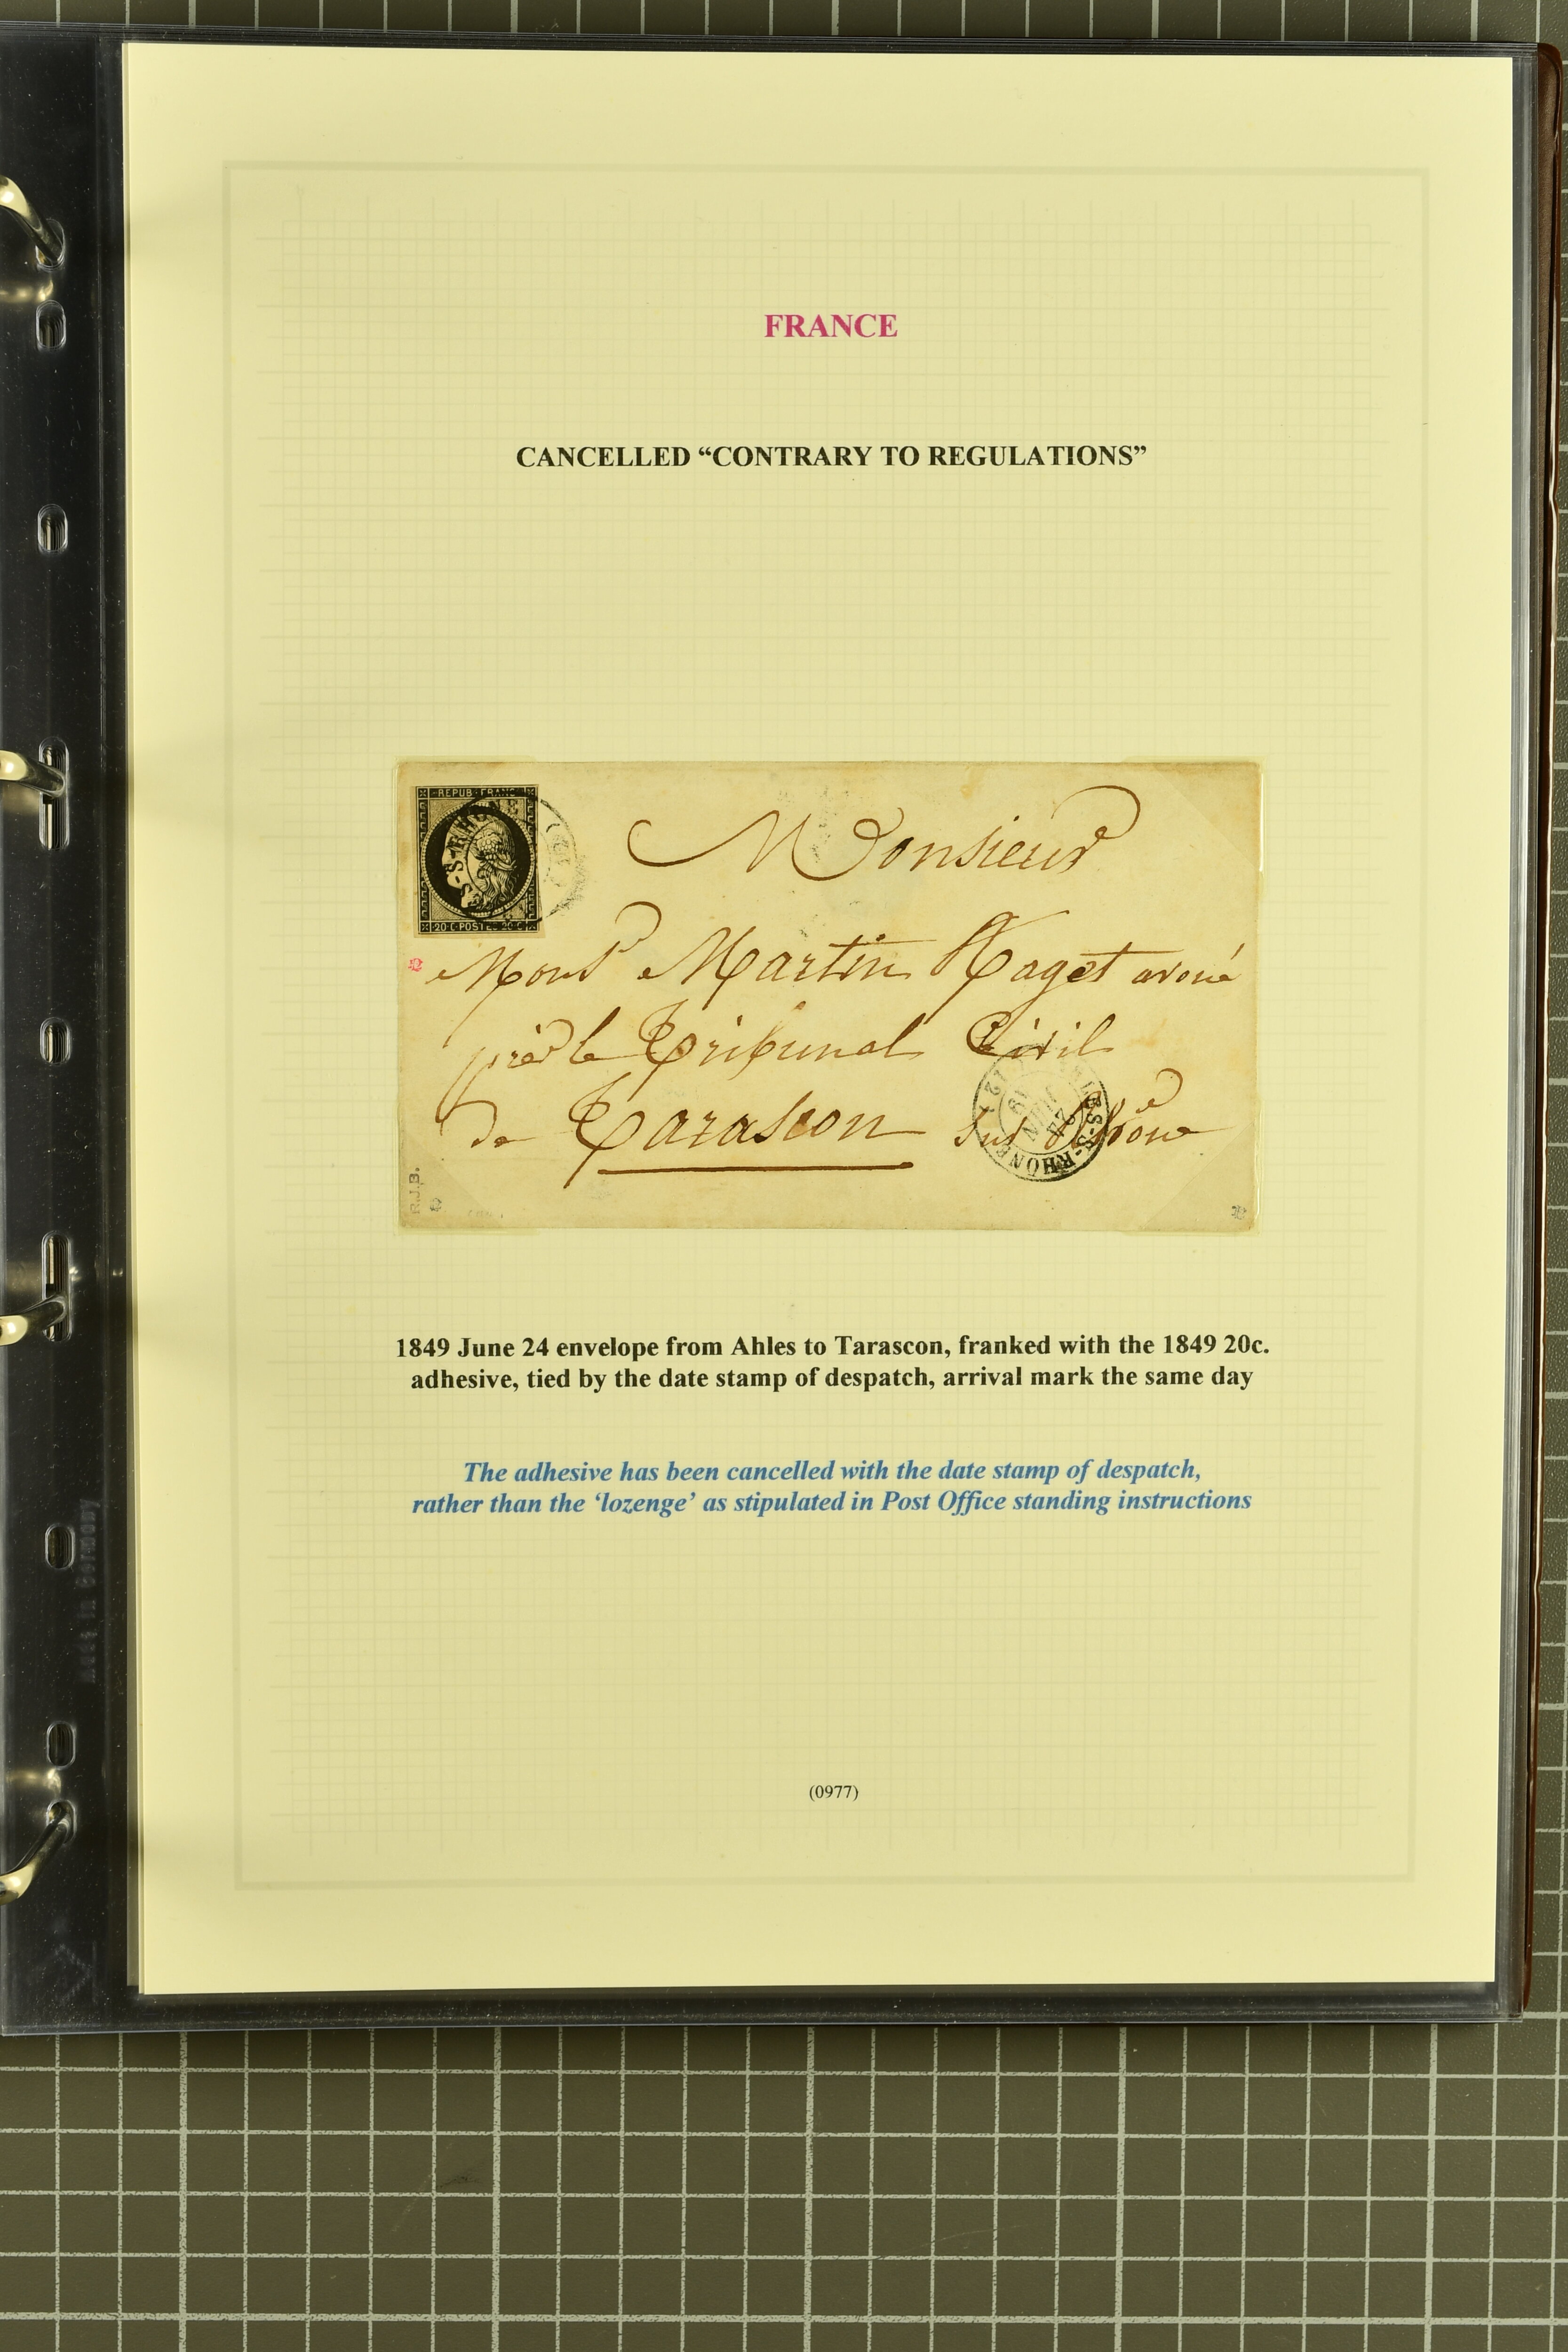 FRANCE
CANCELLED “CONTRARY TO REGULATIONS”
REPUB FRANC
20 C POSTE 20 C
S-S-RHONE
Monsieur
Mons Martin Raget avoué
près le Tribunal Civil
de Tarascon sur Rhône
24
JUIN
S-S-RHONE
R.J.B.
1849 June 24 envelope from Ahles to Tarascon, franked with the 1849 20c.
adhesive, tied by the date stamp of despatch, arrival mark the same day
The adhesive has been cancelled with the date stamp of despatch,
rather than the ‘lozenge’ as stipulated in Post Office standing instructions
(0977)
Made in Germany